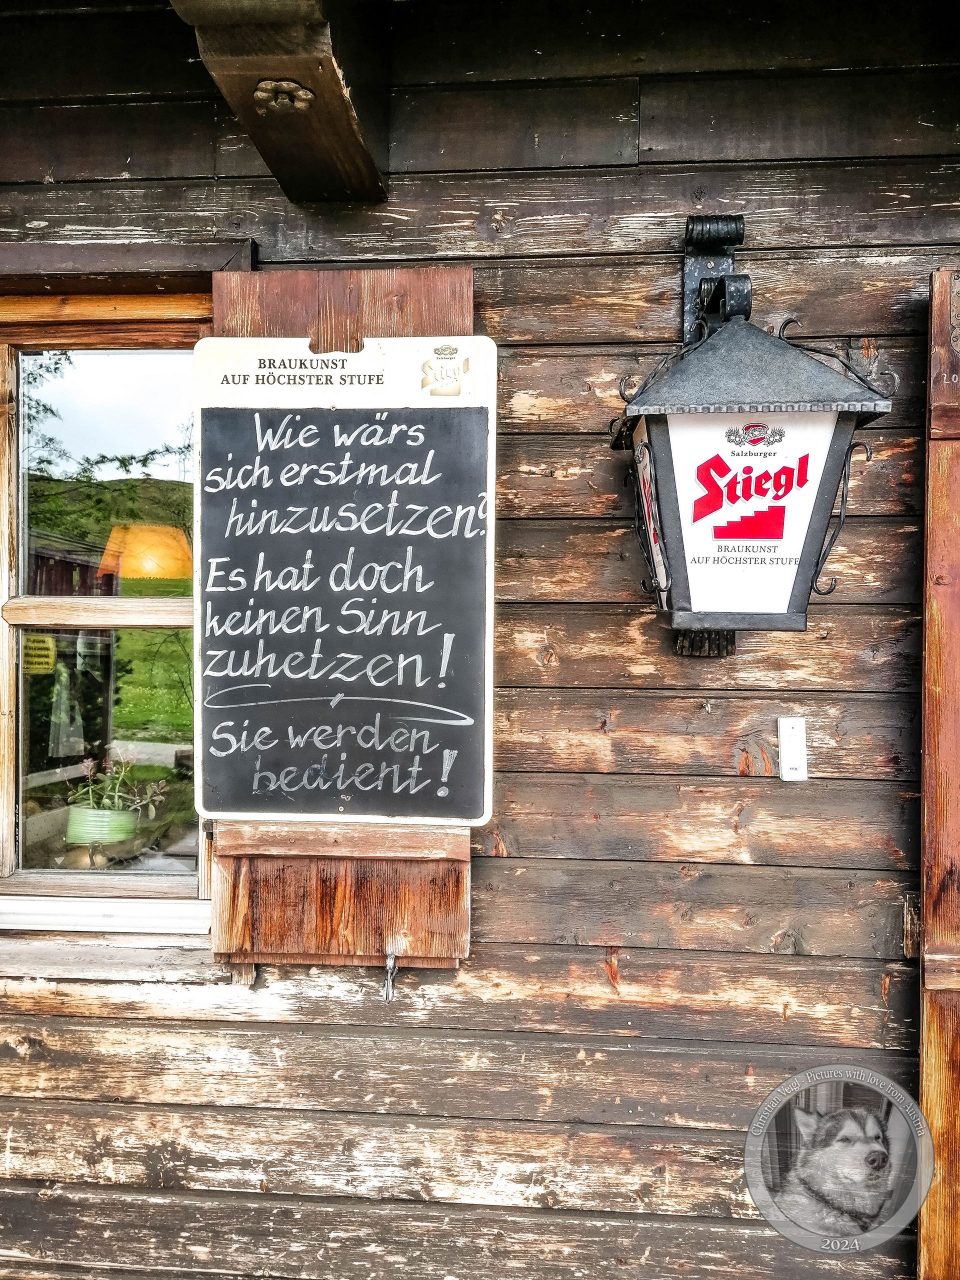 BRAUKUNST
AUF HÖCHSTER STUFE
Salzburger
Stiegl
Wie wärs
sich erstmal
hinzusetzen?
Es hat doch
keinen Sinn
zuhetzen!
Sie werden
bedient!
Salzburger
Stiegl
BRAUKUNST
AUF HÖCHSTER STUFE
Christian Veigl - Pictures with love from Austria
2024